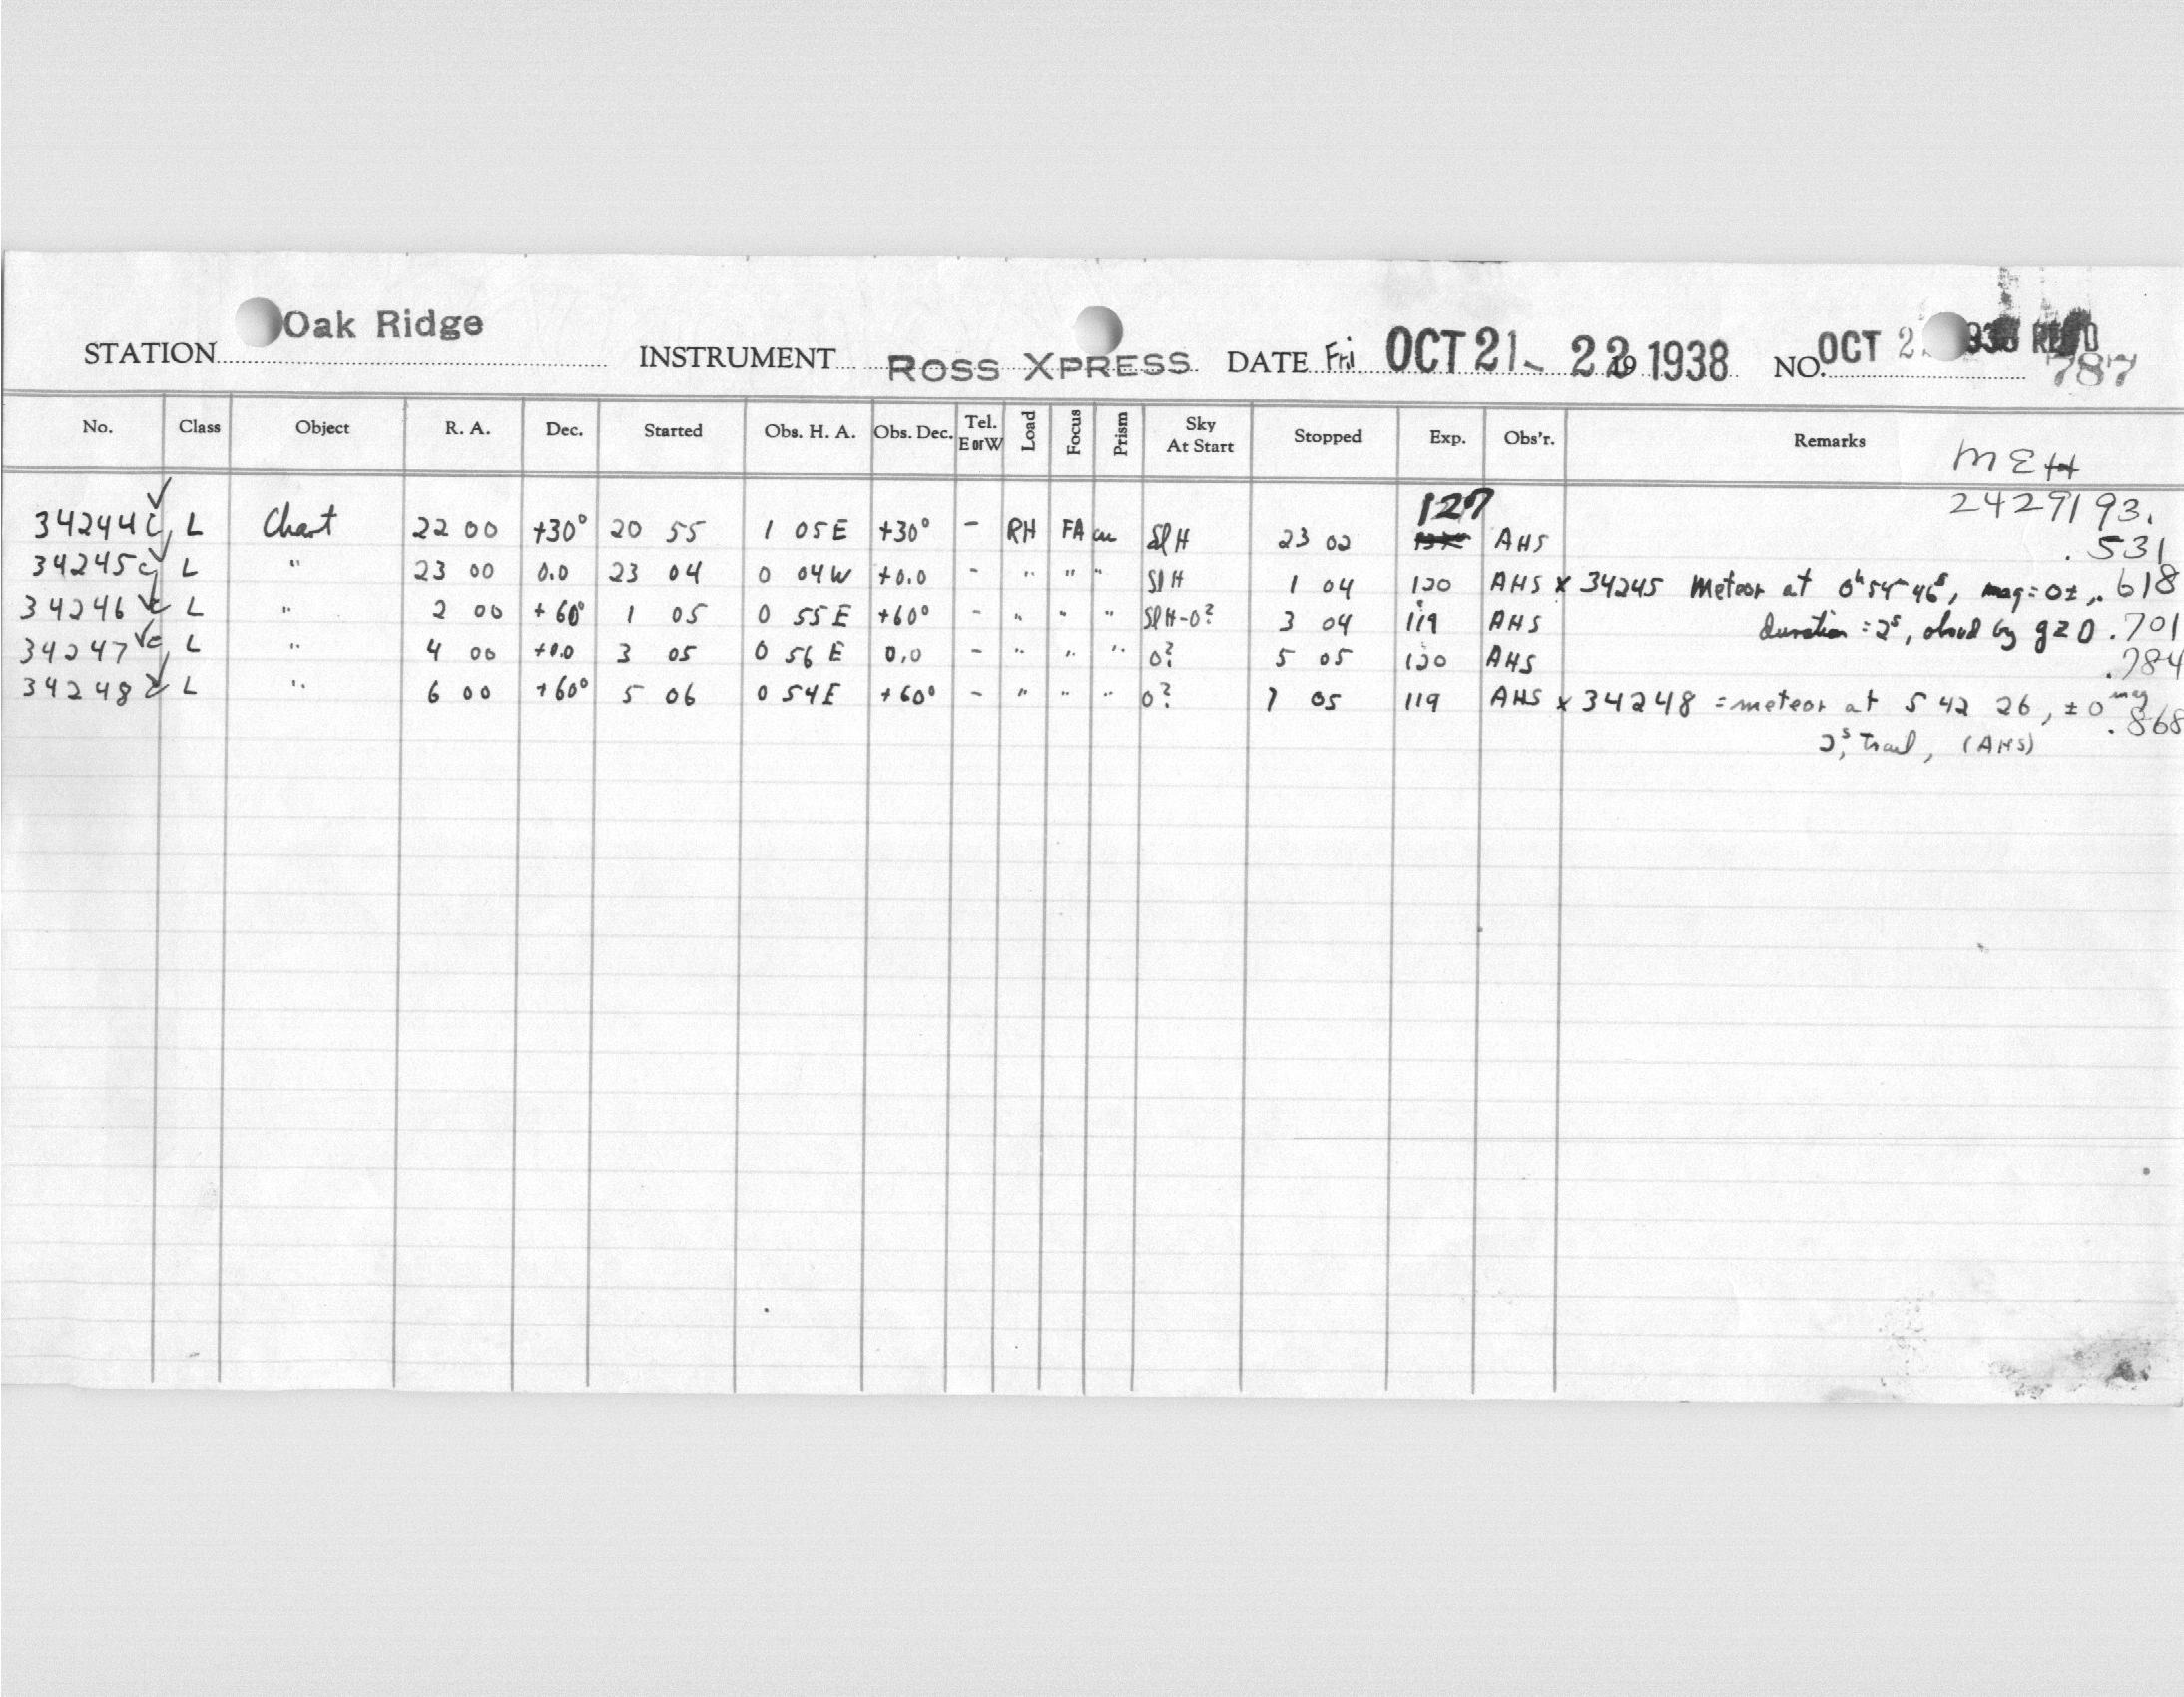 STATION Oak Ridge INSTRUMENT ROSS XPRESS DATE Fri OCT 21- 22 19 1938 NO. OCT 2 1938 REC'D 787
No. Class Object R. A. Dec. Started Obs. H. A. Obs. Dec. Tel. E or W Load Focus Prism Sky At Start Stopped Exp. Obs'r. Remarks
MEH
2429193.
34244c L Chart 22 00 +30° 20 55 1 05E +30° - RH FA cu Sl H 23 02 127 AHS .531
34245c L " 23 00 0.0 23 04 0 04W +0.0 - " " " Sl H 1 04 120 AHS x 34245 Meteor at 0h 54m 46s, mag=0±, .618
34246c L " 2 00 +60° 1 05 0 55E +60° - " " " Sl H-0? 3 04 119 AHS duration = 2s, obsd by gzD .701
34247c L " 4 00 +0.0 3 05 0 56E 0.0 - " " " 0? 5 05 120 AHS .784
34248c L " 6 00 +60° 5 06 0 54E +60° - " " " 0? 7 05 119 AHS x 34248 = meteor at 5 42 26, ±0 mag .868
2s, Trail, (AHS)